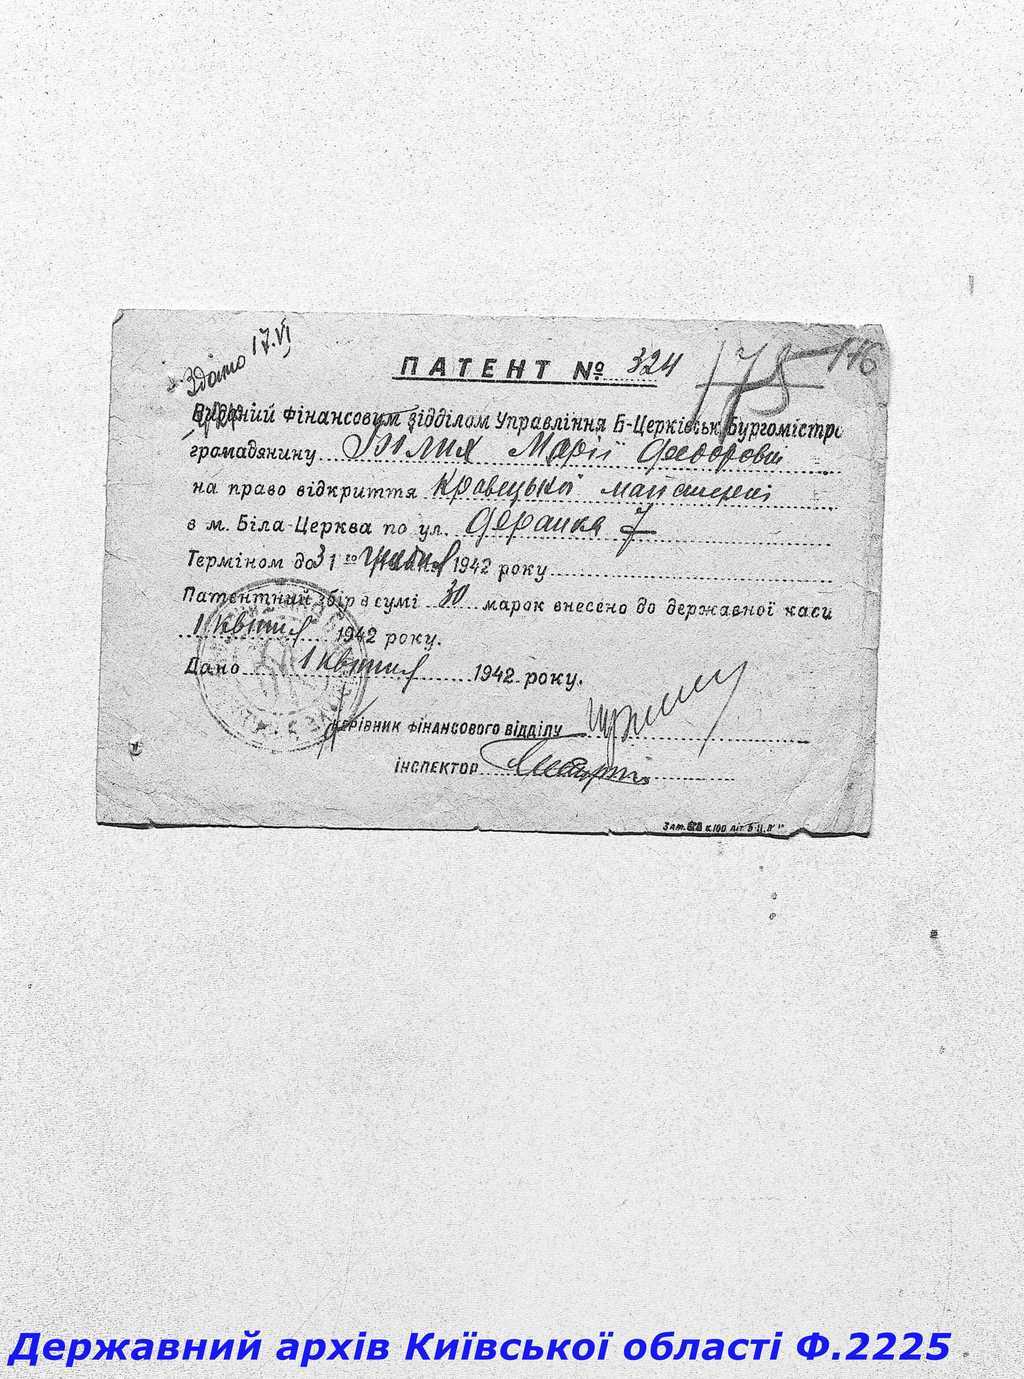 Здано 17.VI
ПАТЕНТ № 324
175 116
Виданий Фінансовим відділом Управління Б-Церківськ. Бургомістра
громадянину Марії Федоровні
на право відкриття кравецької майстерні
в м. Біла-Церква по ул. 7
Терміном до 31 го 1942 року
Патентний збір в сумі 30 марок внесено до державної каси
1 квітня 1942 року.
Дано 1 квітня 1942 року.
КЕРІВНИК ФІНАНСОВОГО ВІДДІЛУ
ІНСПЕКТОР
Державний архів Київської області Ф.2225